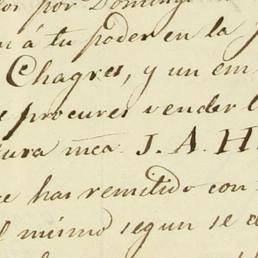 por Doming
á tu poder en la
Chagres, y un em
procures vender l
tura mca. J. A. H
has remitido con
mismo segun se